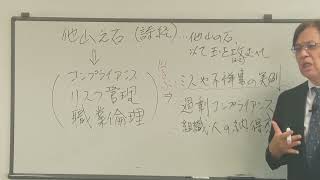 他山之石 (詩経)…他山の石、
以て玉を攻む
コンプライアンス
リスク管理
職業倫理
ミスや不祥事の実例
過剰コンプライアンス
組織人の納得